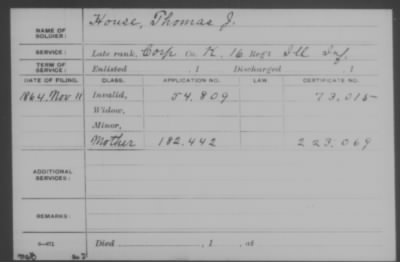 NAME OF SOLDIER: House, Thomas J.
SERVICE: Late rank, Corp Co. K, 16 Reg't Ill Inf
TERM OF SERVICE: Enlisted , 1 Discharged , 1
DATE OF FILING. CLASS. APPLICATION NO. LAW. CERTIFICATE NO.
1864, Nov. 11 Invalid, 54.809 73.015
Widow,
Minor,
Mother 182.442 223.069
ADDITIONAL SERVICES:
REMARKS:
Died , 1 , at